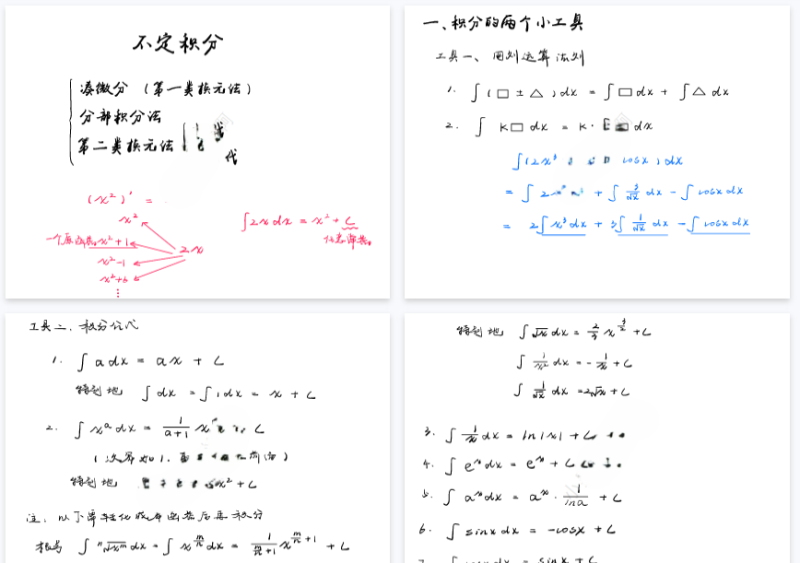 不定积分
凑微分 (第一类换元法)
分部积分法
第二类换元法
代
(x²)' =
x²
一个原函数 x²+1
x²-1
x²+3
⋮
2x
∫2xdx = x² + C
任意常数
一、积分的两个小工具
工具一、用到运算法则
1. ∫(□ ± △)dx = ∫□dx + ∫△dx
2. ∫ K□ dx = K· dx
∫(2x³ cosx)dx
= ∫ 2 + ∫ 3/√x dx - ∫cosxdx
= 2∫x³dx + 3∫ 1/√x dx - ∫cosxdx
工具二、积分公式
1. ∫ a dx = ax + C
特别地 ∫dx = ∫1dx = x + C
2. ∫ xᵃ dx = 1/(a+1) x C
(次幂加1,
特别地 x² + C
注: 以下
根号 ∫ ⁿ√xᵐ dx = ∫ x^(m/n) dx = 1/(m/n+1) x^(m/n+1) + C
特别地 ∫√x dx = 2/3 x^(3/2) + C
∫ 1/x² dx = - 1/x + C
∫ 1/√x dx = 2√x + C
3. ∫ 1/x dx = ln|x| + C
4. ∫ eˣ dx = eˣ + C
5. ∫ aˣ dx = aˣ · 1/lna + C
6. ∫ sinx dx = -cosx + C
7. ∫ dx = sinx + C